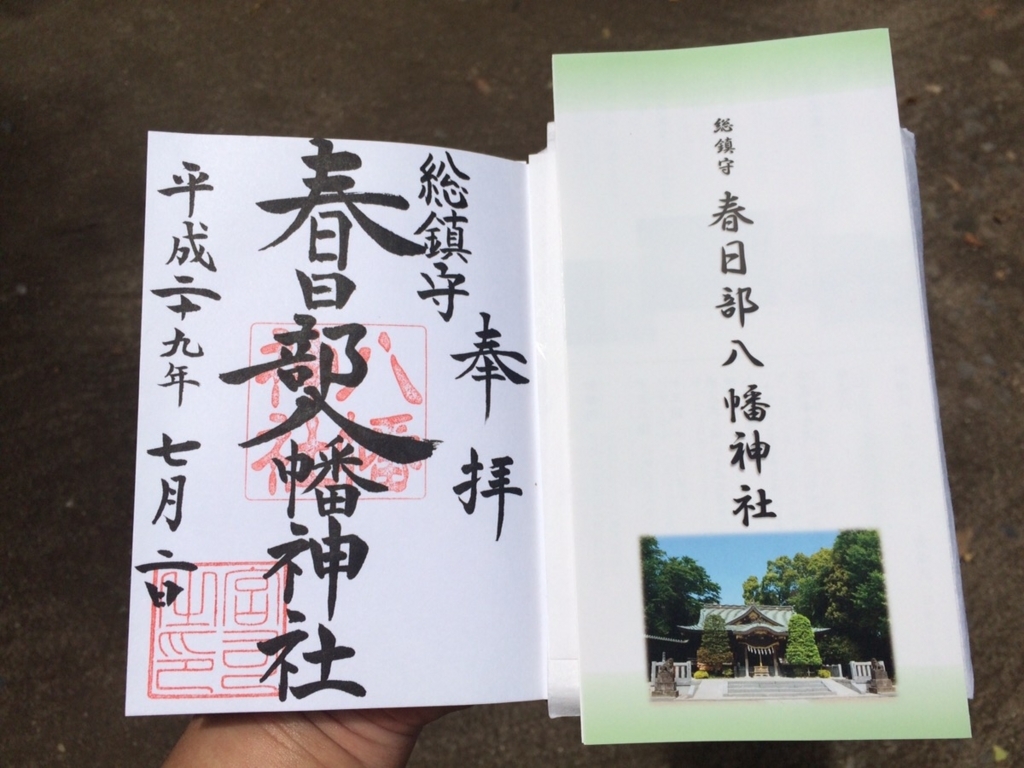 奉拝
総鎮守
春日部八幡神社
平成二十九年 七月二日
八幡神社
総鎮守 春日部八幡神社